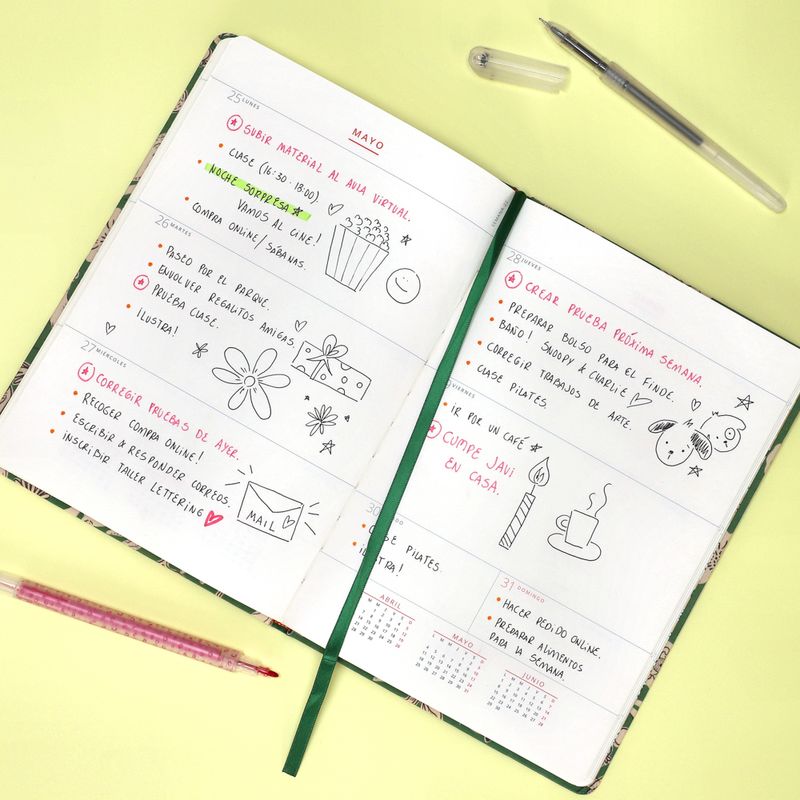 MAYO
25 LUNES
SUBIR MATERIAL AL AULA VIRTUAL.
CLASE (16:30 - 18:00).
NOCHE SORPRESA
VAMOS AL CINE!
COMPRA ONLINE/SÁBANAS.
26 MARTES
PASEO POR EL PARQUE.
ENVOLVER REGALITOS AMIGAS
PRUEBA CLASE.
ILUSTRA!
27 MIÉRCOLES
CORREGIR PRUEBAS DE AYER.
RECOGER COMPRA ONLINE!
ESCRIBIR & RESPONDER CORREOS.
INSCRIBIR TALLER LETTERING
MAIL
28 JUEVES
CREAR PRUEBA PRÓXIMA SEMANA.
PREPARAR BOLSO PARA EL FINDE.
BAÑO! SNOOPY & CHARLIE
CORREGIR TRABAJOS DE ARTE.
CLASE PILATES
VIERNES
IR POR UN CAFÉ
CUMPE JAVI
EN CASA.
30
PILATES.
31 DOMINGO
HACER PEDIDO ONLINE.
PREPARAR ALIMENTOS
PARA LA SEMANA.
ABRIL
MAYO
JUNIO